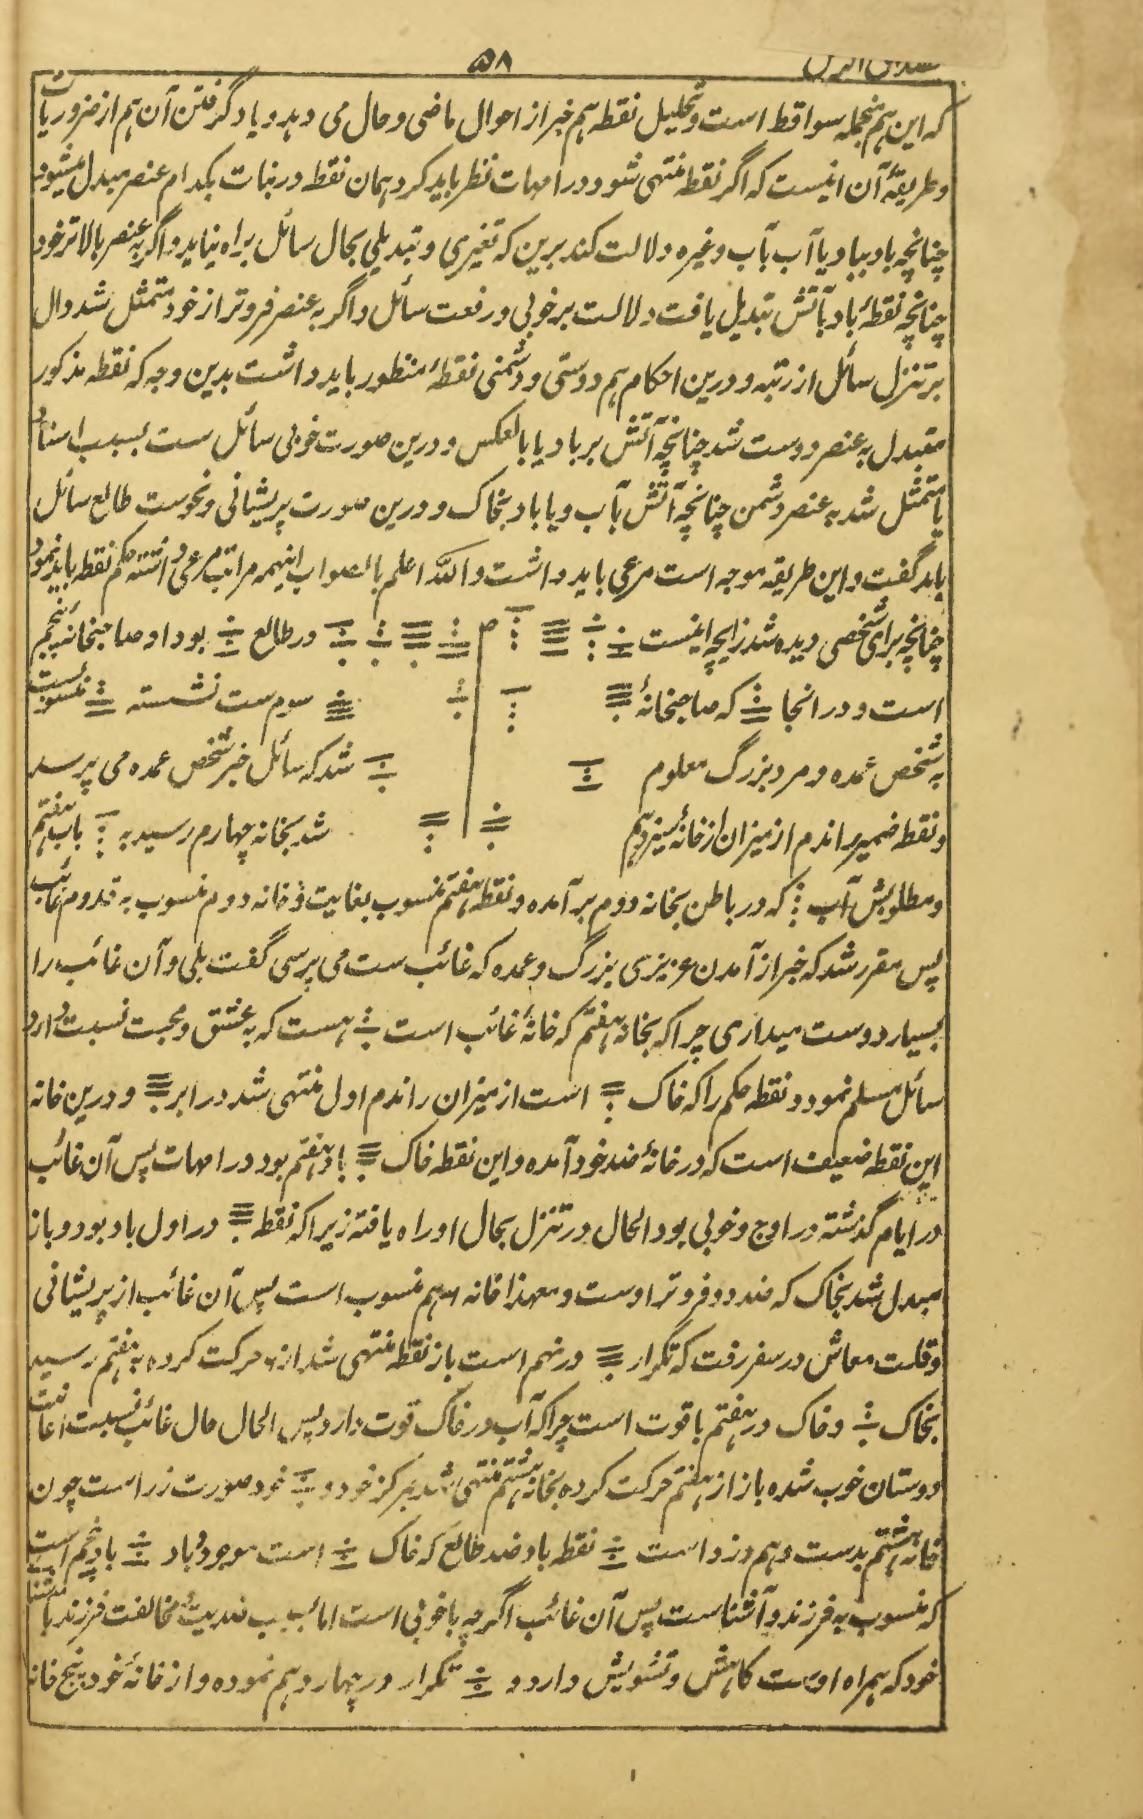 ۵۸
که این هم منجمله سواقط است و تحلیل نقطه هم خبر از احوال ماضی و حال می دهد و یاد گرفتن آن هم از ضروریات
و طریقهٔ آن اینست که اگر نقطه منتهی شود در امهات نظر باید کرد همان نقطه در بنات بکدام عنصر مبدل میشود
چنانچه باد بباد یا آب بآب وغیره دلالت کند برین که تغیری و تبدیلی بحال سائل براه نیاید و اگر به عنصر بالاتر خود
چنانچه نقطهٔ باد بآتش تبدیل یافت دلالت بر خوبی و رفعت سائل و اگر به عنصر فروتر از خود متمثل شد دال
بر تنزل سائل از رتبه و درین احکام هم دوستی و دشمنی نقطهٔ منظور باید داشت بدین وجه که نقطه مذکور
متبدل به عنصر دوست شد چنانچه آتش بر باد یا بالعکس و درین صورت خوبی سائل ست بسبب اسناد
یا متمثل شد به عنصر دشمن چنانچه آتش بآب و یا باد بخاک و درین صورت پریشانی و نحوست طالع سائل
باید گفت و این طریقه موجه است مرعی باید داشت والله اعلم بالصواب اینهمه مراتب مرعی داشته حکم نقطه باید نمود
چنانچه برای شخصی دیده شد زایچه اینست در طالع بود او صاحبخانه پنجم
است و در انجا که صاحبخانهٔ سوم ست نشسته منسوبست
به شخص عمده و مرد بزرگ معلوم شد که سائل خبر شخص عمده می پرسد
و نقطه ضمیر براندم از میزان از خانهٔ سیزدهم شد بخانه چهارم رسید به باب هفتم
و مطلوبش آب که در باطن بخانه دوم برآمده و نقطه هفتم منسوب بغایت و خانه دوم منسوب به قدوم غائب
پس مقرر شد که خبر از آمدن عزیزی بزرگ و عمده که غائب ست می پرسی گفت بلی و آن غائب را
بسیار دوست میداری چرا که بخانه هفتم که خانهٔ غائب است هست که به عشق و محبت نسبت دارد
سائل مسلم نمود و نقطه حکم را که خاک است از میزان راندم اول منتهی شد در ابر و درین خانه
این نقطه ضعیف است که در خانهٔ ضد خود آمده و این نقطه خاک باد هفتم بود در امهات پس آن غائب
در ایام گذشته در اوج و خوبی بود الحال در تنزل بحال او راه یافته زیرا که نقطه در اول باد بود و باز
مبدل شد بخاک که ضد و فروتر اوست و معهذا خانه هم منسوب است پس آن غائب از پریشانی
و قلت معاش در سفر رفت که تکرار در نهم است باز نقطه منتهی شد از حرکت کرده به هفتم رسید
بخاک و خاک در هفتم با قوت است چرا که آب در خاک قوت دارد پس الحال حال غائب نسبت اعانت
دوستان خوب شده باز از هفتم حرکت کرده بخانه هشتم منتهی شد بمرکز خود و خود صورت زر است چون
خانه هشتم بدست و هم دزد است نقطه باد ضد طالع که خاک است موجود باد باد پنجم است
که منسوب به فرزند و آشناست پس آن غائب اگرچه با خوبی است اما بسبب ضدیت مخالفت فرزند یا آشنا
خود که همراه اوست کاهش و تشویش دارد و تکرار در چهاردهم نموده و از خانهٔ خود پنج خانه